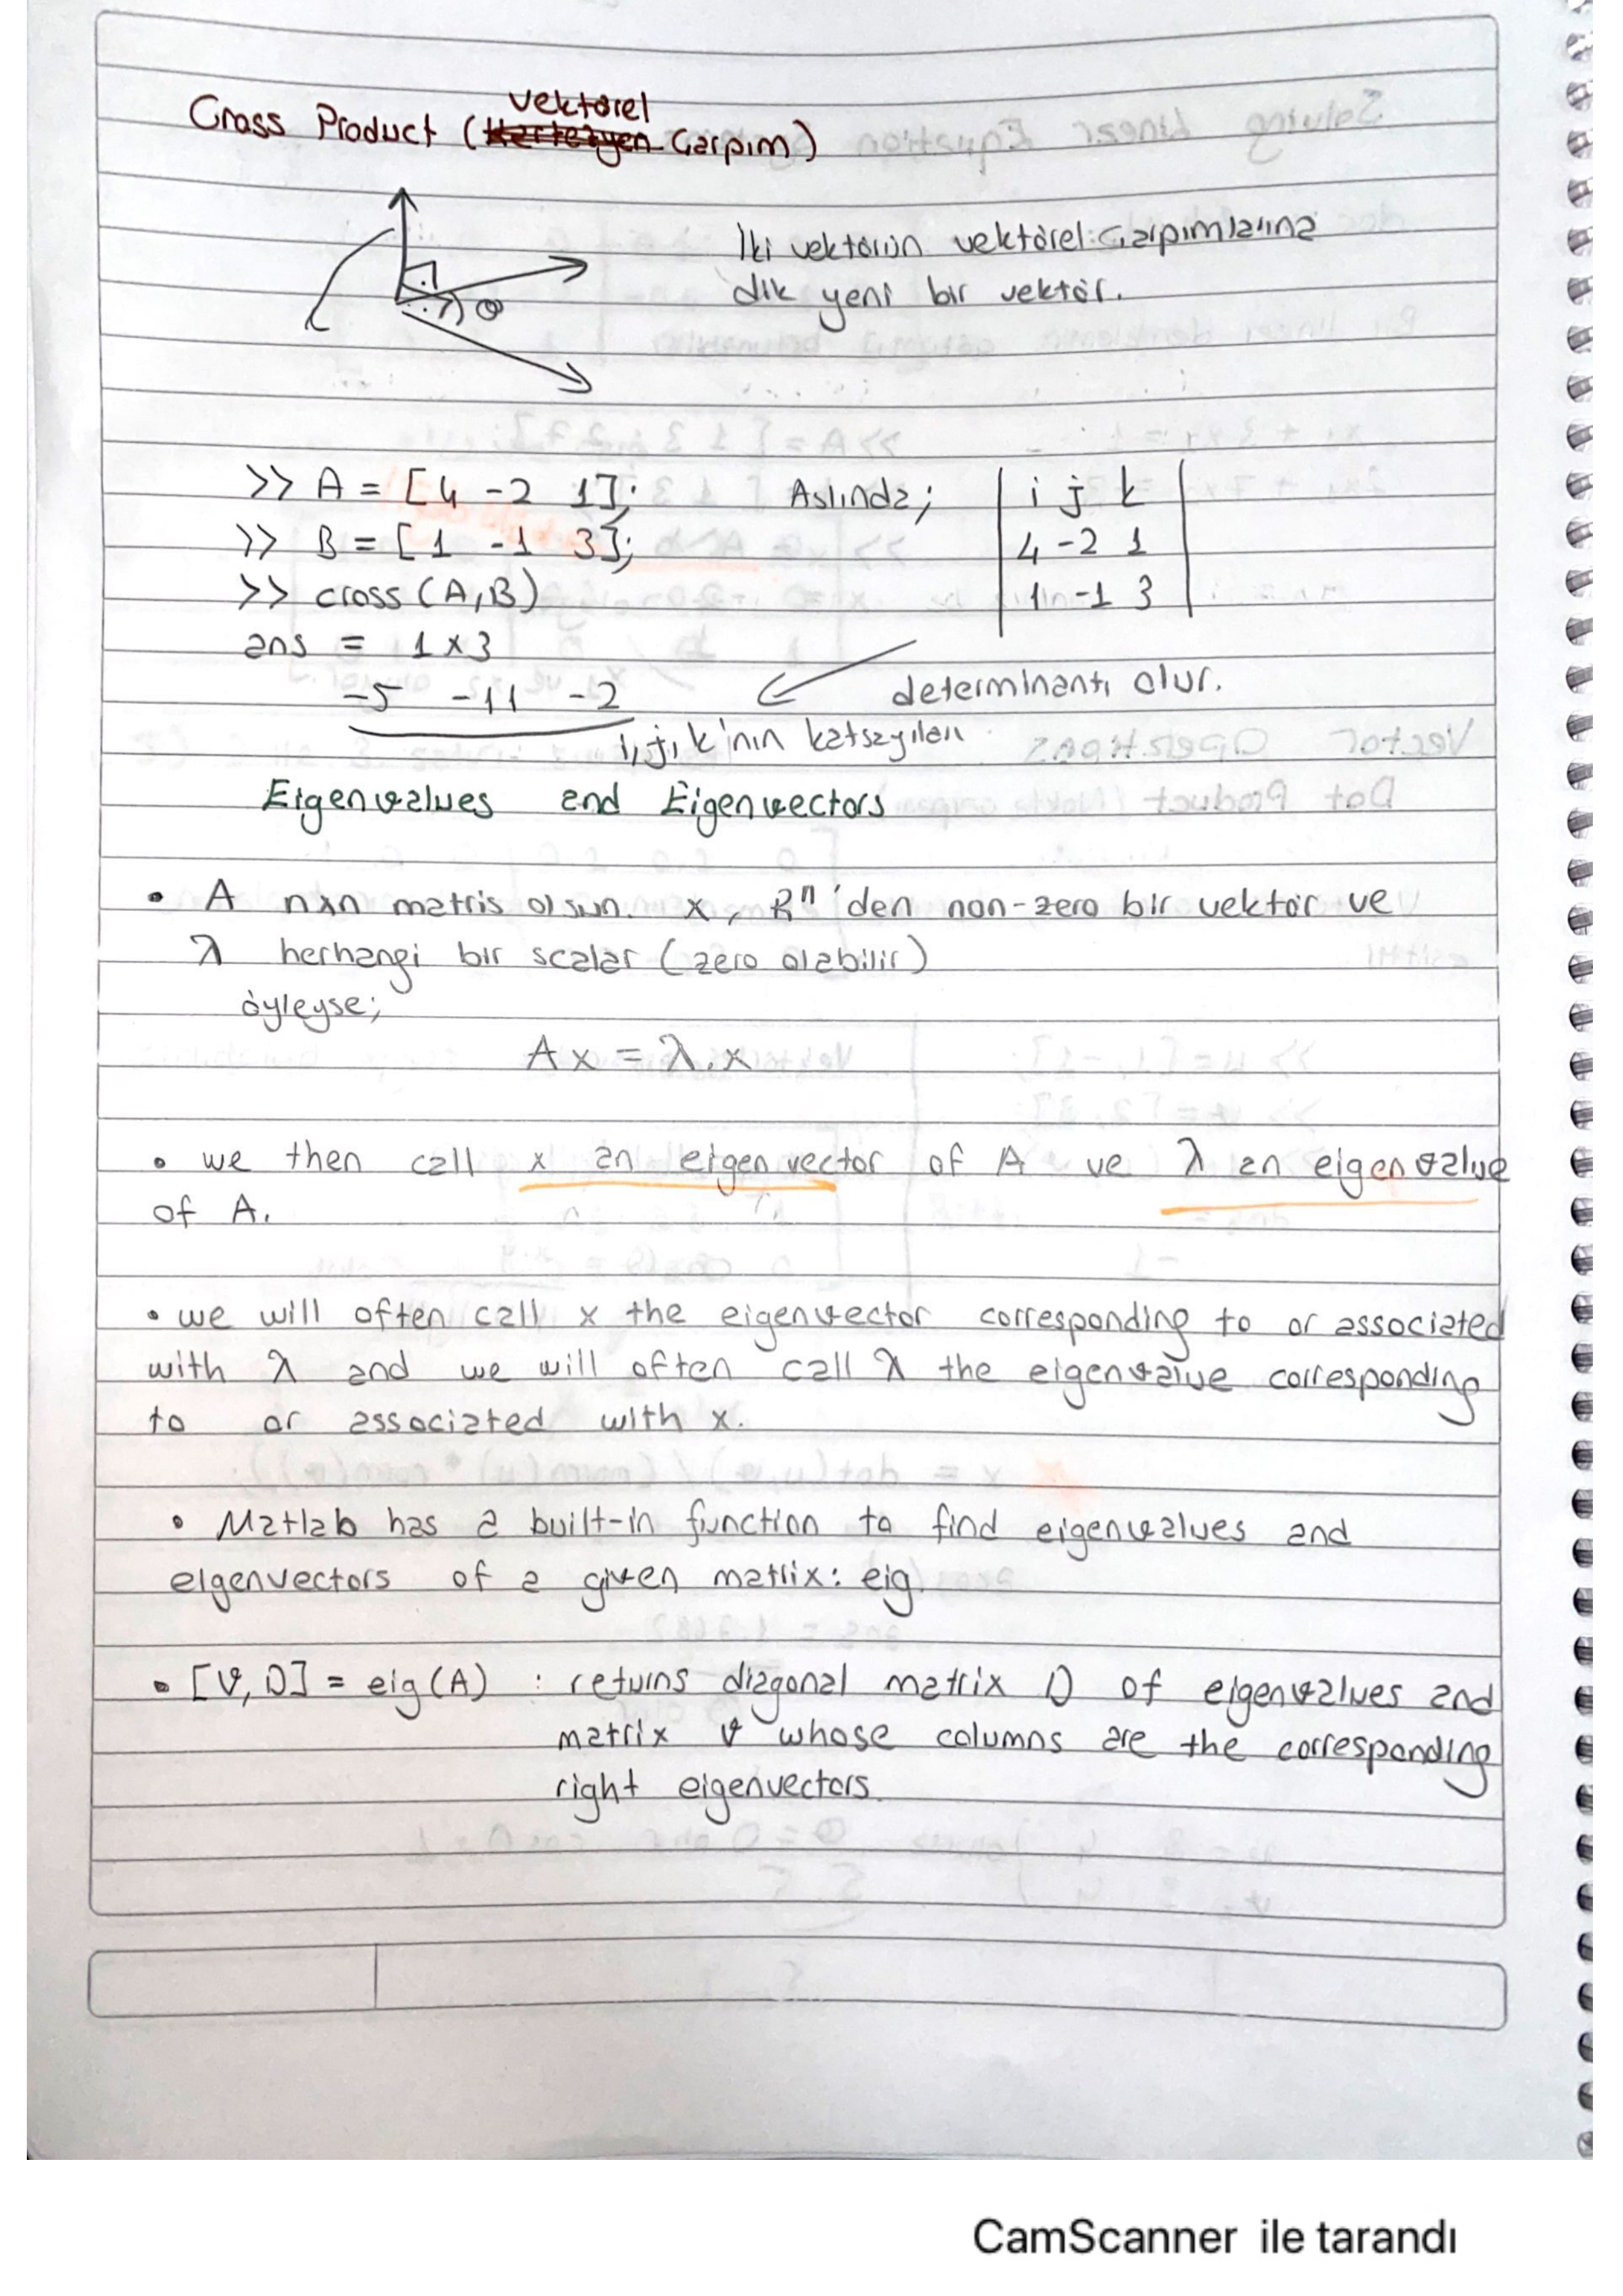 Cross Product (Kartezyen Vektörel Çarpım)
İki vektörün vektörel çarpımlarına
dik yeni bir vektör.
θ
>> A = [4 -2 1]; Aslında; | i j k |
>> B = [1 -1 3]; | 4 -2 1 |
>> cross (A,B) | 1 -1 3 |
ans = 1x3
-5 -11 -2 determinantı olur.
i, j, k'nın katsayıları
Eigenvalues and Eigenvectors
• A nxn matris olsun. x, Rⁿ'den non-zero bir vektör ve
λ herhangi bir scalar (zero olabilir)
öyleyse;
Ax = λ.x
• we then call x an eigenvector of A ve λ an eigenvalue
of A.
• we will often call x the eigenvector corresponding to or associated
with λ and we will often call λ the eigenvalue corresponding
to or associated with x.
• Matlab has a built-in function to find eigenvalues and
eigenvectors of a given matrix: eig
• [V, D] = eig(A) : returns diagonal matrix D of eigenvalues and
matrix V whose columns are the corresponding
right eigenvectors.
CamScanner ile tarandı